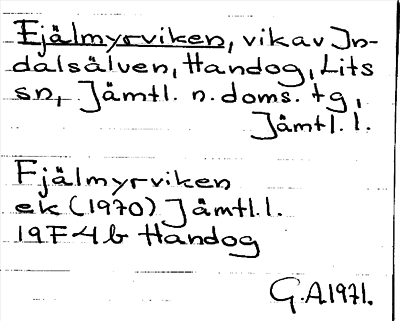 Fjälmyrviken, vik av In-
dalsälven, Handog, Lits
sn, Jämtl. n. doms. tg,
Jämtl. l.
Fjälmyrviken
ek (1970) Jämtl. l.
19F 4b Handog
G.A. 1971.